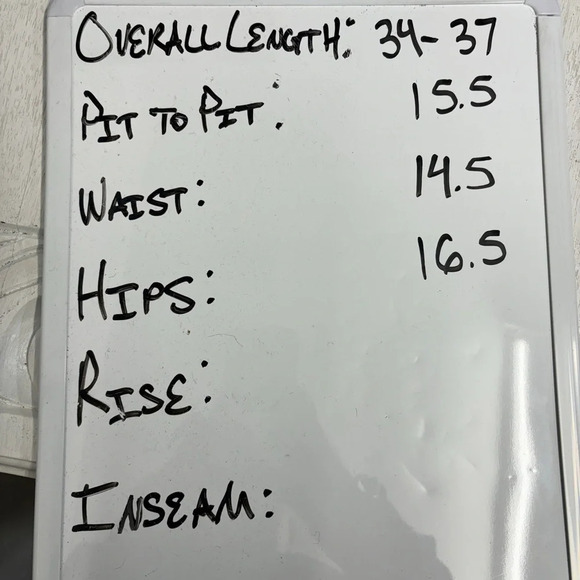 OVERALL LENGTH: 34-37
PIT TO PIT: 15.5
WAIST: 14.5
HIPS: 16.5
RISE:
INSEAM: